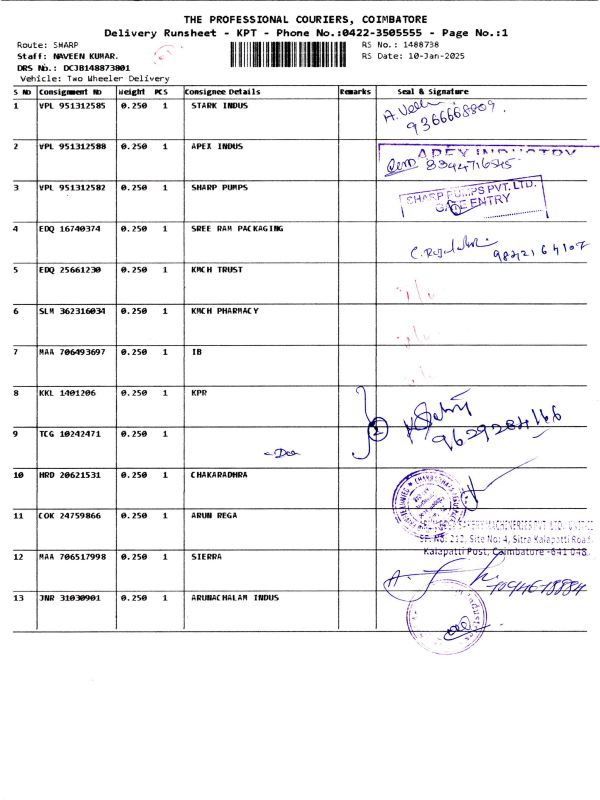 THE PROFESSIONAL COURIERS, COIMBATORE
Delivery Runsheet - KPT - Phone No.:0422-3505555 - Page No.:1
Route: SHARP
RS No.: 1488738
Staff: NAVEEN KUMAR.
RS Date: 10-Jan-2025
DRS No.: DCJB148873801
Vehicle: Two Wheeler Delivery
S No Consignment No Weight PCS Consignee Details Remarks Seal & Signature
1 VPL 951312585 0.250 1 STARK INDUS
9366668809
2 VPL 951312588 0.250 1 APEX INDUS
APEX INDUSTRY
8394716545
3 VPL 951312582 0.250 1 SHARP PUMPS
SHARP PUMPS PVT. LTD.
GATE ENTRY
4 EDQ 16740374 0.250 1 SREE RAM PACKAGING
9842164107
5 EDQ 25661230 0.250 1 KMCH TRUST
6 SLM 362316034 0.250 1 KMCH PHARMACY
7 MAA 706493697 0.250 1 IB
8 KKL 1401206 0.250 1 KPR
2
9629284166
9 TCG 10242471 0.250 1
10 HRD 20621531 0.250 1 CHAKARADHRA
11 COK 24759866 0.250 1 ARUN REGA
MACHINERIES PVT LTD.
SF. No: 212, Site No: 4, Sitra Kalapatti Road,
Kalapatti Post, Coimbatore -641 048.
12 MAA 706517998 0.250 1 SIERRA
13 JNR 31030901 0.250 1 ARUNACHALAM INDUS